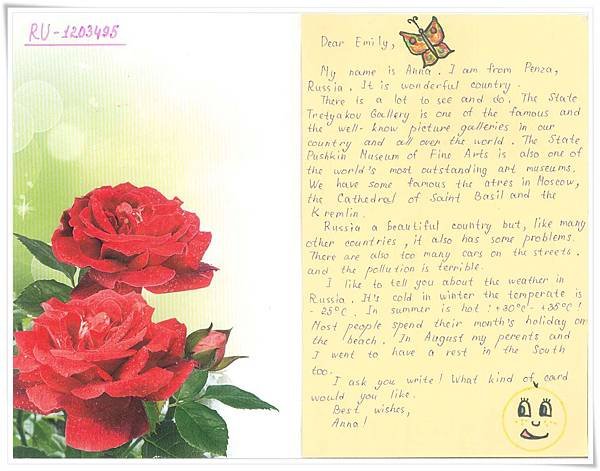 RU-1203495
Dear Emily,
My name is Anna. I am from Penza,
Russia. It is wonderful country.
There is a lot to see and do. The State
Tretyakov Gallery is one of the famous and
the well-know picture galleries in our
country and all over the world. The State
Pushkin Museum of Fine Arts is also one of
the world's most outstanding art museums.
We have some famous the atres in Moscow,
the Cathedral of Saint Basil and the
Kremlin.
Russia a beautiful country but, like many
other countries, it also has some problems.
There are also too many cars on the streets.
and the pollution is terrible.
I like to tell you about the weather in
Russia. It's cold in winter the temperate is
-25°C. In summer is hot: +30°C-+35°C!
Most people spend their month's holiday on
the beach. In August my perents and
I went to have a rest in the South
too.
I ask you write! What kind of card
would you like.
Best wishes,
Anna!